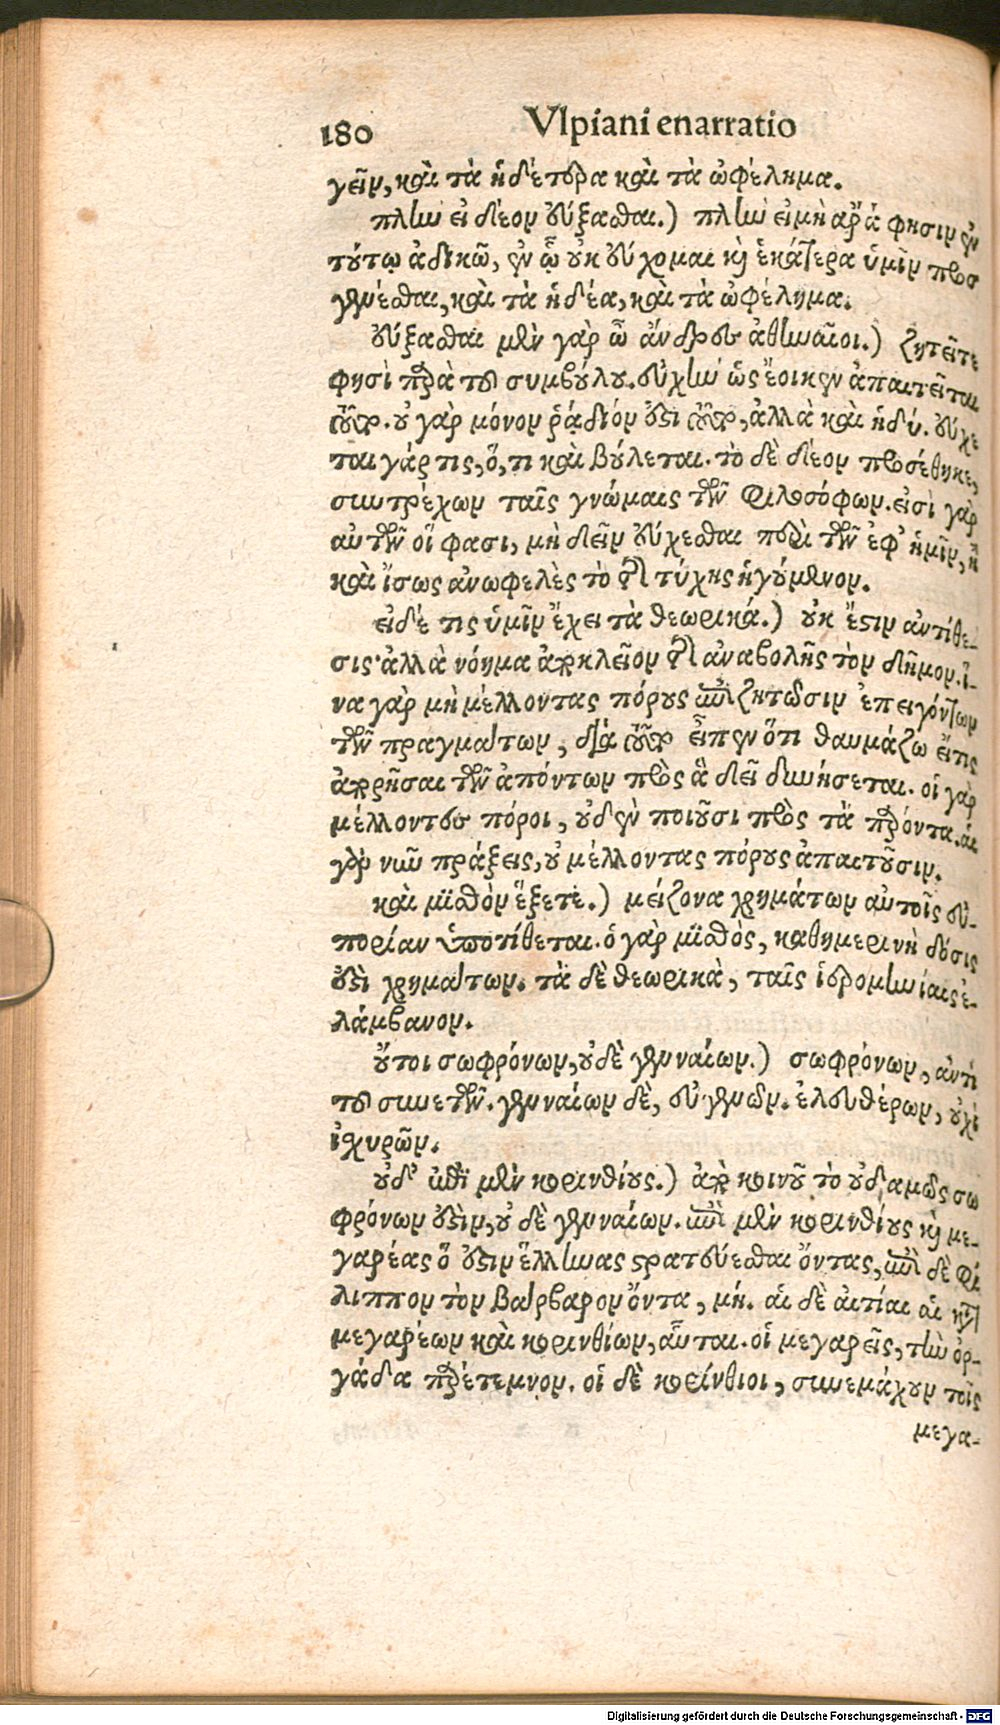 180 Vlpiani enarratio
γεῖν, καὶ τὰ ἡδέτερα καὶ τὰ ὠφέλημα.
πλὴν εἰ δέον εὔξασθαι.) πλὴν εἰ μὴ ἄρα φησιν ἐν
τούτῳ ἀδικῶ, ἐν ᾧ οὐκ εὔχομαι καὶ ἑκάτερα ὑμῖν προσ
γενέσθαι, καὶ τὰ ἡδέα, καὶ τὰ ὠφέλημα.
εὔξασθαι μὲν γὰρ ὦ ἄνδρες ἀθηναῖοι.) ζητεῖτε
φησὶ παρὰ τοῦ συμβούλου. εὐχὴν ὡς ἔοικεν ἀπαιτεῖται
τοῦτο. οὐ γὰρ μόνον ῥᾴδιόν ἐστι τοῦτο, ἀλλὰ καὶ ἡδύ. εὔχε
ται γάρ τις, ὅ, τι καὶ βούλεται. τὸ δὲ δέον προσέθηκε,
συντρέχων ταῖς γνώμαις τῶν φιλοσόφων. εἰσὶ γὰρ
αὐτῶν οἵ φασι, μὴ δεῖν εὔχεσθαι περὶ τῶν ἐφ' ἡμῖν, ἢ
καὶ ἴσως ἀνωφελὲς τὸ τῆς τύχης ἡγούμενον.
εἰ δέ τις ὑμῖν ἔχει τὰ θεωρικά.) οὐκ ἔστιν ἀντίθε-
σις ἀλλὰ νόημα ἀποκλεῖον τῆς ἀναβολῆς τὸν δῆμον. ἵ-
να γὰρ μὴ μέλλοντας πόρους ἐπιζητῶσιν ἐπειγόντων
τῶν πραγμάτων, διὰ τοῦτο εἶπεν ὅτι θαυμάζω εἴ τις
ἀπορῆσαι τῶν ἀπόντων πρὸς ἃ δεῖ δυνήσεται. οἱ γὰρ
μέλλοντες πόροι, οὐδὲν ποιοῦσι πρὸς τὰ παρόντα. αἱ
γὰρ νῦν πράξεις, οὐ μέλλοντας πόρους ἀπαιτοῦσιν.
καὶ μισθὸν ἕξετε.) μείζονα χρημάτων αὐτοῖς εὐ-
πορίαν ὑποτίθεται. ὁ γὰρ μισθὸς, καθημερινὴ δόσις
ἐστὶ χρημάτων. τὰ δὲ θεωρικὰ, ταῖς ἱερομηνίαις ἐ-
λάμβανον.
οὔτοι σωφρόνων, οὐδὲ γενναίων.) σωφρόνων, ἀντὶ
τοῦ συνετῶν. γενναίων δὲ, εὐγενῶν. ἐλευθέρων, οὐχὶ
ἰχυρῶν.
οὐδ' ἐπὶ μὲν κορινθίους.) ἀπὸ κοινοῦ τὸ οὐδαμῶς σω
φρόνων ἐστὶν, οὐ δὲ γενναίων. ἐπὶ μὲν κορινθίους καὶ με-
γαρέας ὅ ἐστιν ἕλληνας στρατεύεσθαι ὄντας, ἐπὶ δὲ φί
λιππον τὸν βάρβαρον ὄντα, μή. αἱ δὲ αἰτίαι αἱ κατὰ
μεγαρέων καὶ κορινθίων, αὗται. οἱ μεγαρεῖς, τὴν ὀρ-
γάδα παρέτεμνον. οἱ δὲ κορίνθιοι, συνεμάχουν τοῖς
μεγα-
Digitalisierung gefördert durch die Deutsche Forschungsgemeinschaft - DFG